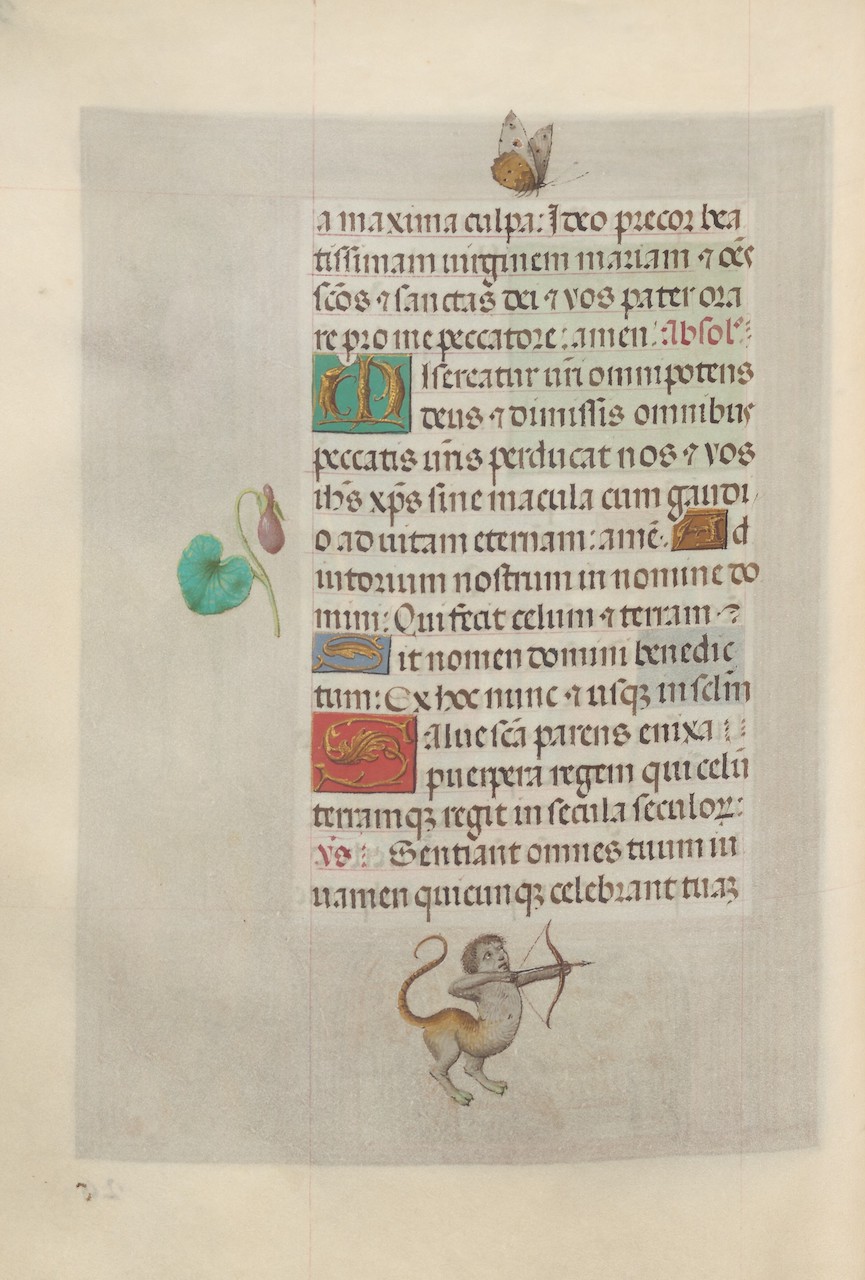 a maxima culpa: Ideo precor bea
tissimam uirginem mariam ⁊ oẽs
sc̃os ⁊ sanctas dei ⁊ vos pater ora
re pro me peccatore: amen: Absol'
Misereatur ur̃i omnipotens
deus ⁊ dimissis omnibus
peccatis ur̃is perducat nos ⁊ vos
ihs̃ xp̃s sine macula cum gaudi
o ad uitam eternam: amẽ. Ad
iutorium nostrum in nomine do
mini: Qui fecit celum ⁊ terram
Sit nomen domini benedic
tum: Ex hoc nunc ⁊ usqꝫ in sclm̃
Salue sc̃a parens enixa
puerpera regem qui celũ
terramqꝫ regit in secula seculoꝝ:
v̾s: Sentiant omnes tuum iu
uamen quicumqꝫ celebrant tuaꝫ